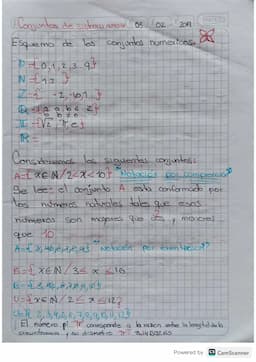 Conjuntos de 05 02 2019
Esquema de los conjuntos numericos.
P={0,1,2,3..9}
N={1,2 }
Z={ -2,-1,0,1 }
Q={ a, b ∈ Z}
II={√2, π, e}
R=
Consideremos los siguientes conjuntos:
A={x∈N/2<x<10} Notación por comprension
Se lee: el conjunto A esta conformado por
los números naturales tales que esos
números son mayores que 2 y menores
que 10
A={3,4,5,6,7,8,9} Notación por extension
B={x∈N/3≤ x ≤10
B={3,4,5,6,7,8,9,10}
U={x∈N/2 ≤ x ≤12}
U={2,3,4,5,6,7,8,9,10,11,12}
El número pi π corresponde a la razon entre la longitud de la
circunferencia y su diametro
Powered by CamScanner